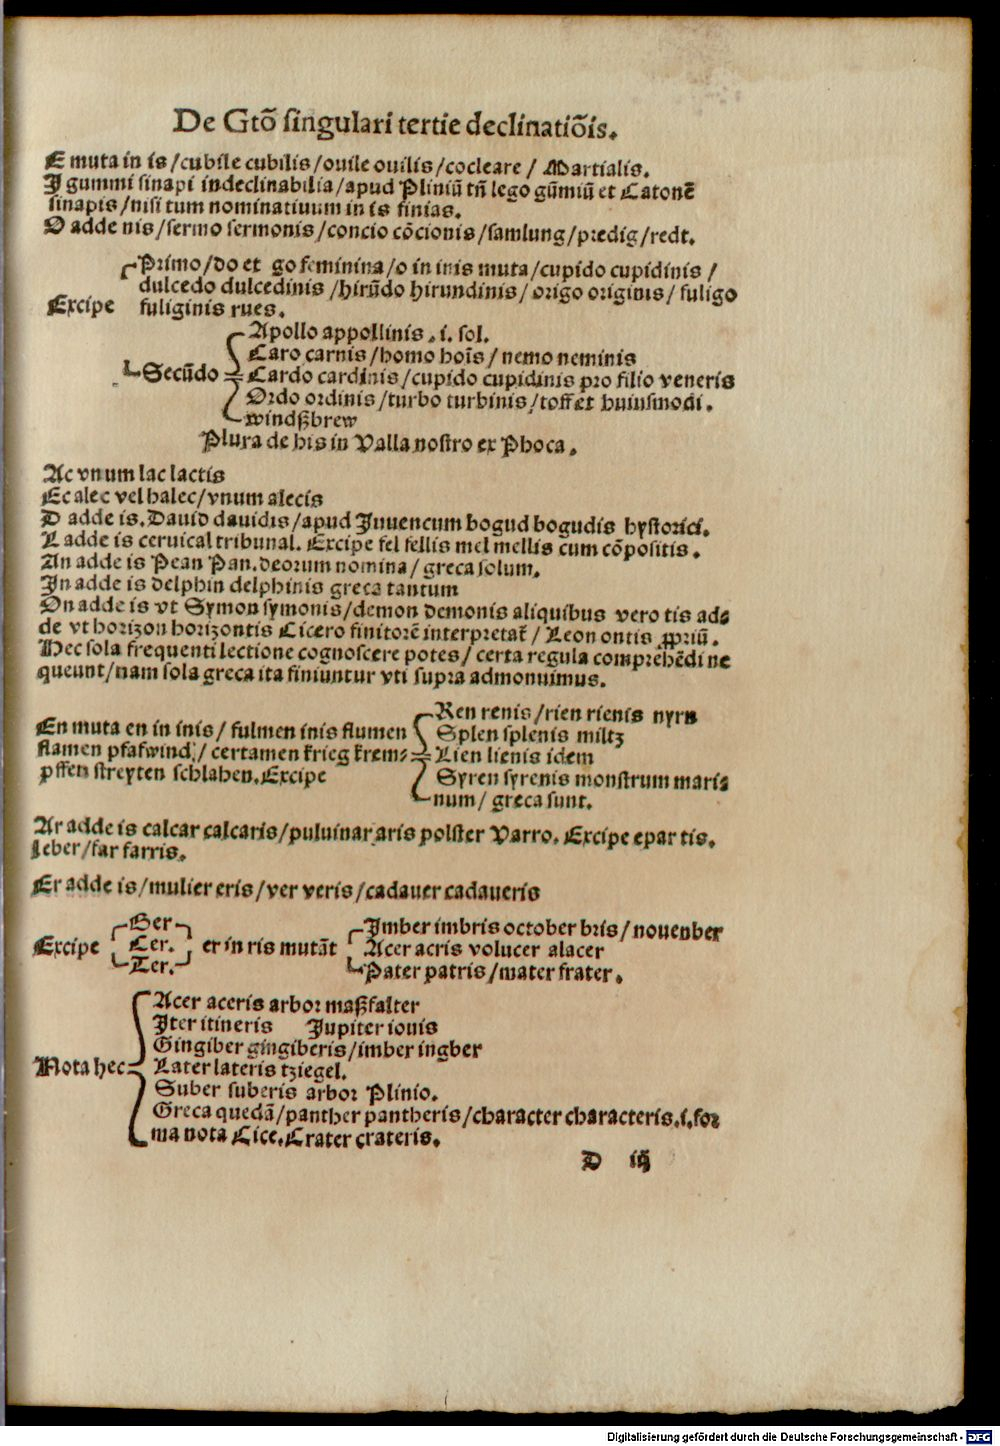 De Gtō singulari tertie declinatiōis.
E muta in is/cubile cubilis/ouile ouilis/cocleare / Martialis.
I gummi sinapi indeclinabilia/apud Pliniū tn̄ lego gūmiū et Catonē
sinapis/nisi tum nominatiuum in is finias.
O adde nis/sermo sermonis/concio cōcionis/samlung/predig/redt.
Primo/do et go feminina/o in inis muta/cupido cupidinis /
dulcedo dulcedinis /hirūdo hirundinis/ origo originis/ fuligo
Excipe fuliginis rues.
Apollo appollinis .i. sol.
Caro carnis/homo hoīs/ nemo neminis
Secūdo Cardo cardinis/cupido cupidinis pro filio veneris
Ordo ordinis/turbo turbinis/toff et huiusmodi.
windßbrew
Plura de his in Valla nostro ex Phoca.
Ac vnum lac lactis
Ec alec vel halec/vnum alecis
D adde is. Dauid dauidis/apud Iuuencum bogud bogudis hystorici.
L adde is ceruical tribunal. Excipe fel fellis mel mellis cum cōpositis.
An adde is Pean Pan. deorum nomina/ greca solum.
In adde is delphin delphinis greca tantum
On adde is vt Symon symonis/demon demonis aliquibus vero tis ad⸗
de vt horizon horizontis Cicero finitorē interpretat̄ / Leon ontis ꝓpriū.
Hec sola frequenti lectione cognoscere potes/ certa regula comprehēdi ne
queunt/nam sola greca ita finiuntur vti supra admonuimus.
Ren renis/rien rienis nyrn
En muta en in inis/ fulmen inis flumen Splen splenis miltz
flamen pfafwind / certamen krieg krem⸗ Lien lienis idem
pffen streyten schlahen. Excipe Syren syrenis monstrum mari⸗
num/ greca sunt.
Ar adde is calcar calcaris/puluinar aris polster Varro. Excipe epar tis.
leber/far farris.
Er adde is/mulier eris/ver veris/cadauer cadaueris
Ber Imber imbris october bris/ nouenber
Excipe Cer. er in ris mutāt Acer acris volucer alacer
Ter. Pater patris/mater frater.
Acer aceris arbor maßfalter
Iter itineris Jupiter iouis
Gingiber gingiberis/imber ingber
Nota hec Later lateris tziegel.
Suber suberis arbor Plinio.
Greca quedā/panther pantheris/character characteris.i.for
ma nota Cice. Crater crateris.
D iij
Digitalisierung gefördert durch die Deutsche Forschungsgemeinschaft - DFG